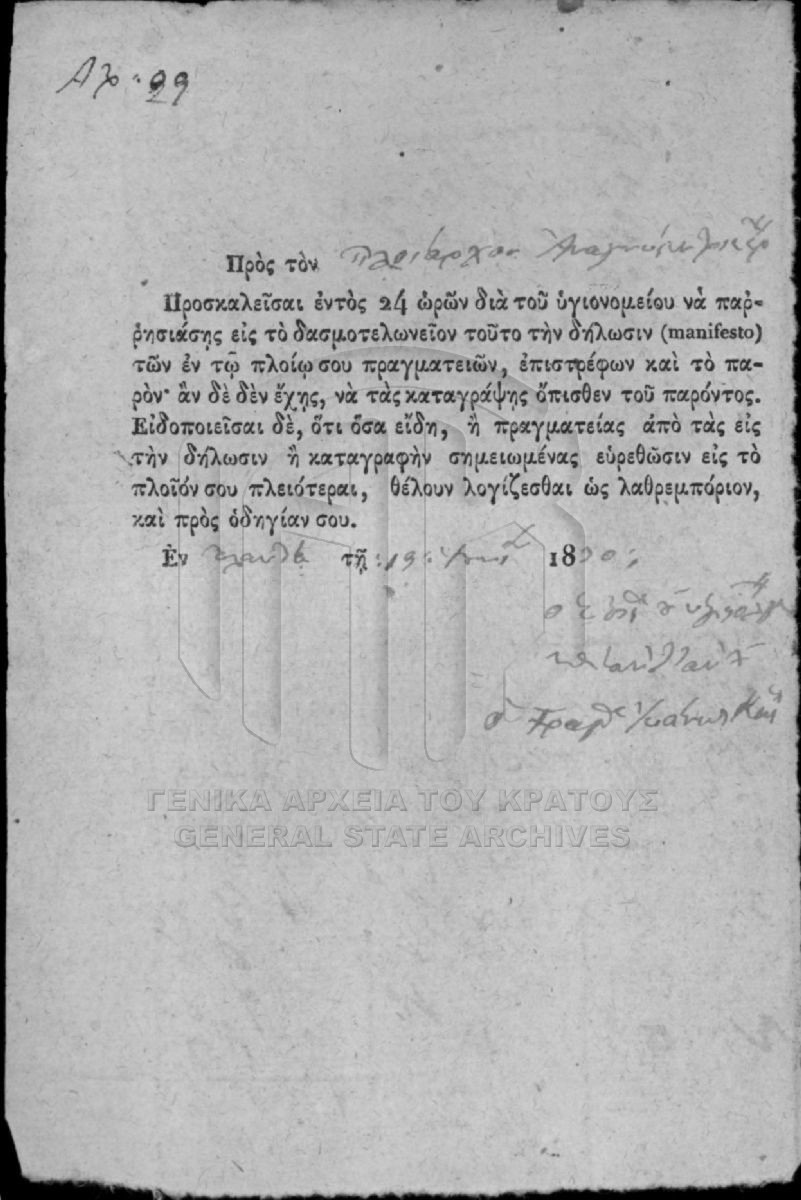 Αρ: 99
Πρὸς τὸν πλοίαρχον
Προσκαλεῖσαι ἐντὸς 24 ὡρῶν διὰ τοῦ ὑγιονομείου νὰ παρ-
ῥησιάσῃς εἰς τὸ δασμοτελωνεῖον τοῦτο τὴν δήλωσιν (manifesto)
τῶν ἐν τῷ πλοίῳ σου πραγματειῶν, ἐπιστρέφων καὶ τὸ πα-
ρὸν· ἂν δὲ δὲν ἔχῃς, νὰ τὰς καταγράψῃς ὄπισθεν τοῦ παρόντος.
Εἰδοποιεῖσαι δὲ, ὅτι ὅσα εἴδη, ἢ πραγματείας ἀπὸ τὰς εἰς
τὴν δήλωσιν ἢ καταγραφὴν σημειωμένας εὑρεθῶσιν εἰς τὸ
πλοῖόν σου πλειότεραι, θέλουν λογίζεσθαι ὡς λαθρεμπόριον,
καὶ πρὸς ὁδηγίαν σου.
Ἐν τῇ 19 1830
ΓΕΝΙΚΑ ΑΡΧΕΙΑ ΤΟΥ ΚΡΑΤΟΥΣ
GENERAL STATE ARCHIVES